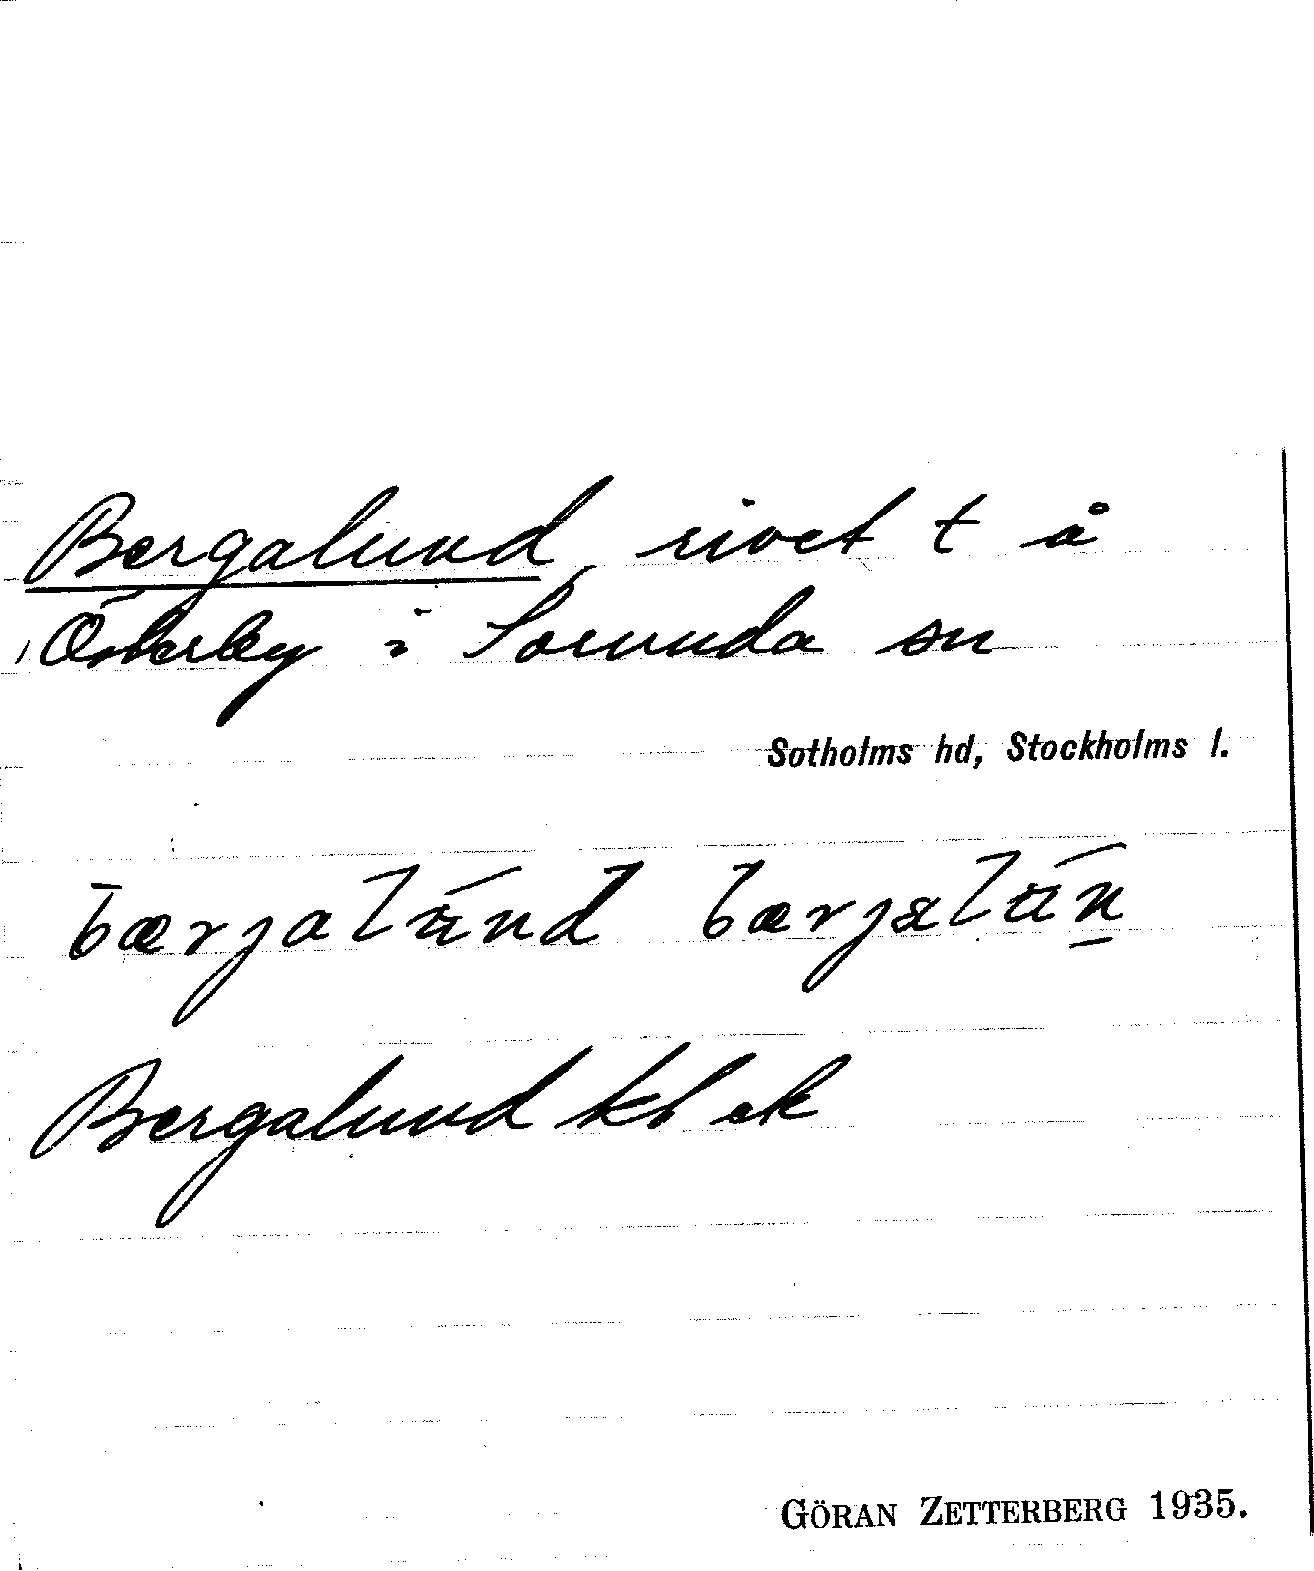 Bergalund, rivet t å
Österby i Sorunda sn
Sotholms hd, Stockholms l.
bærjalúnd bærjalún
Bergalund kl ek
GÖRAN ZETTERBERG 1935.